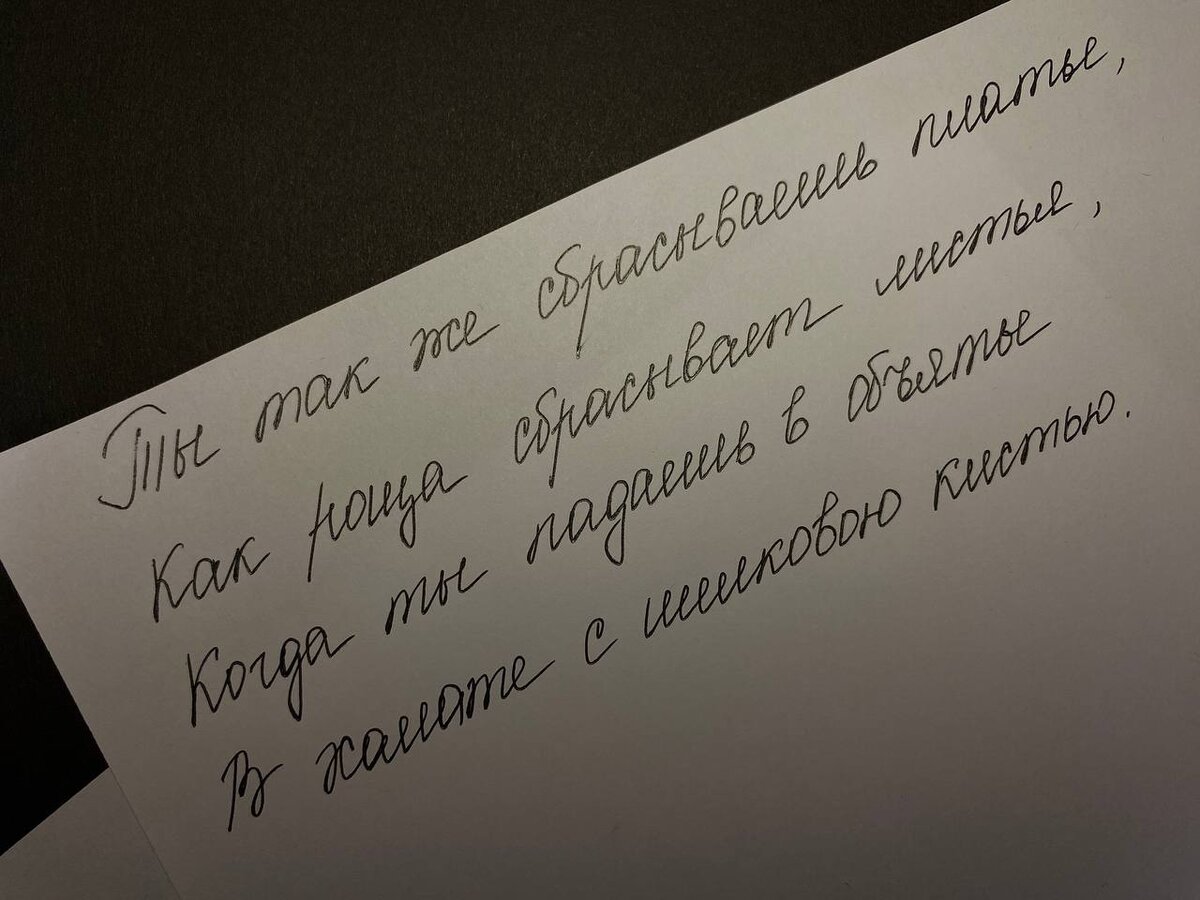 Ты так же сбрасываешь платье,
Как роща сбрасывает листья,
Когда ты падаешь в объятье
В халате с шелковою кистью.